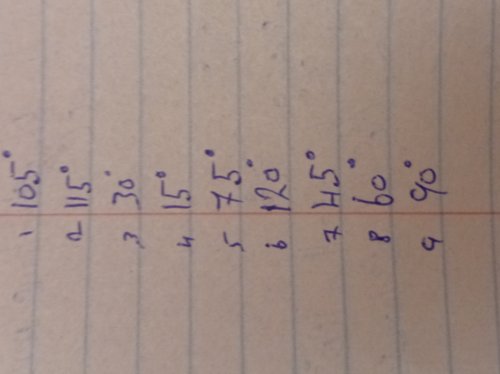 1 105°
2 115°
3 30°
4 15°
5 75°
6 120°
7 45°
8 60°
9 90°